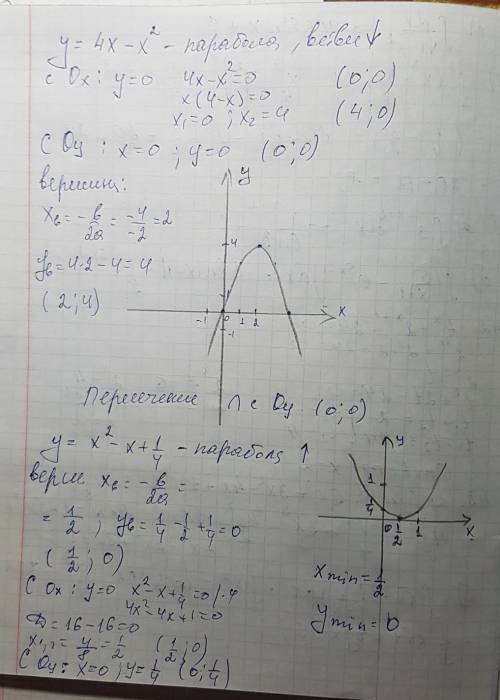 y = 4x - x² - парабола, ветви ↓
с Ox: y=0 4x-x²=0 (0;0)
x(4-x)=0
x₁=0; x₂=4 (4;0)
с Oy: x=0; y=0 (0;0)
вершина:
xв = -b/2a = -4/-2 = 2
yв = 4·2-4 = 4
(2;4)
y
4
x
-1 0 1 2
-1
Пересечение ∩ с Oy (0;0)
y = x² - x + 1/4 - парабола ↑
верш xв = -b/2a =
= 1/2; yв = 1/4 - 1/2 + 1/4 = 0
(1/2; 0)
с Ox: y=0 x²-x+1/4=0 |·4
4x²-4x+1=0
D=16-16=0
x₁,₂ = 4/8 = 1/2 (1/2; 0)
с Oy: x=0; y=1/4 (0; 1/4)
y
1
1/4
0 1/2 1 x
xmin = 1/2
ymin = 0